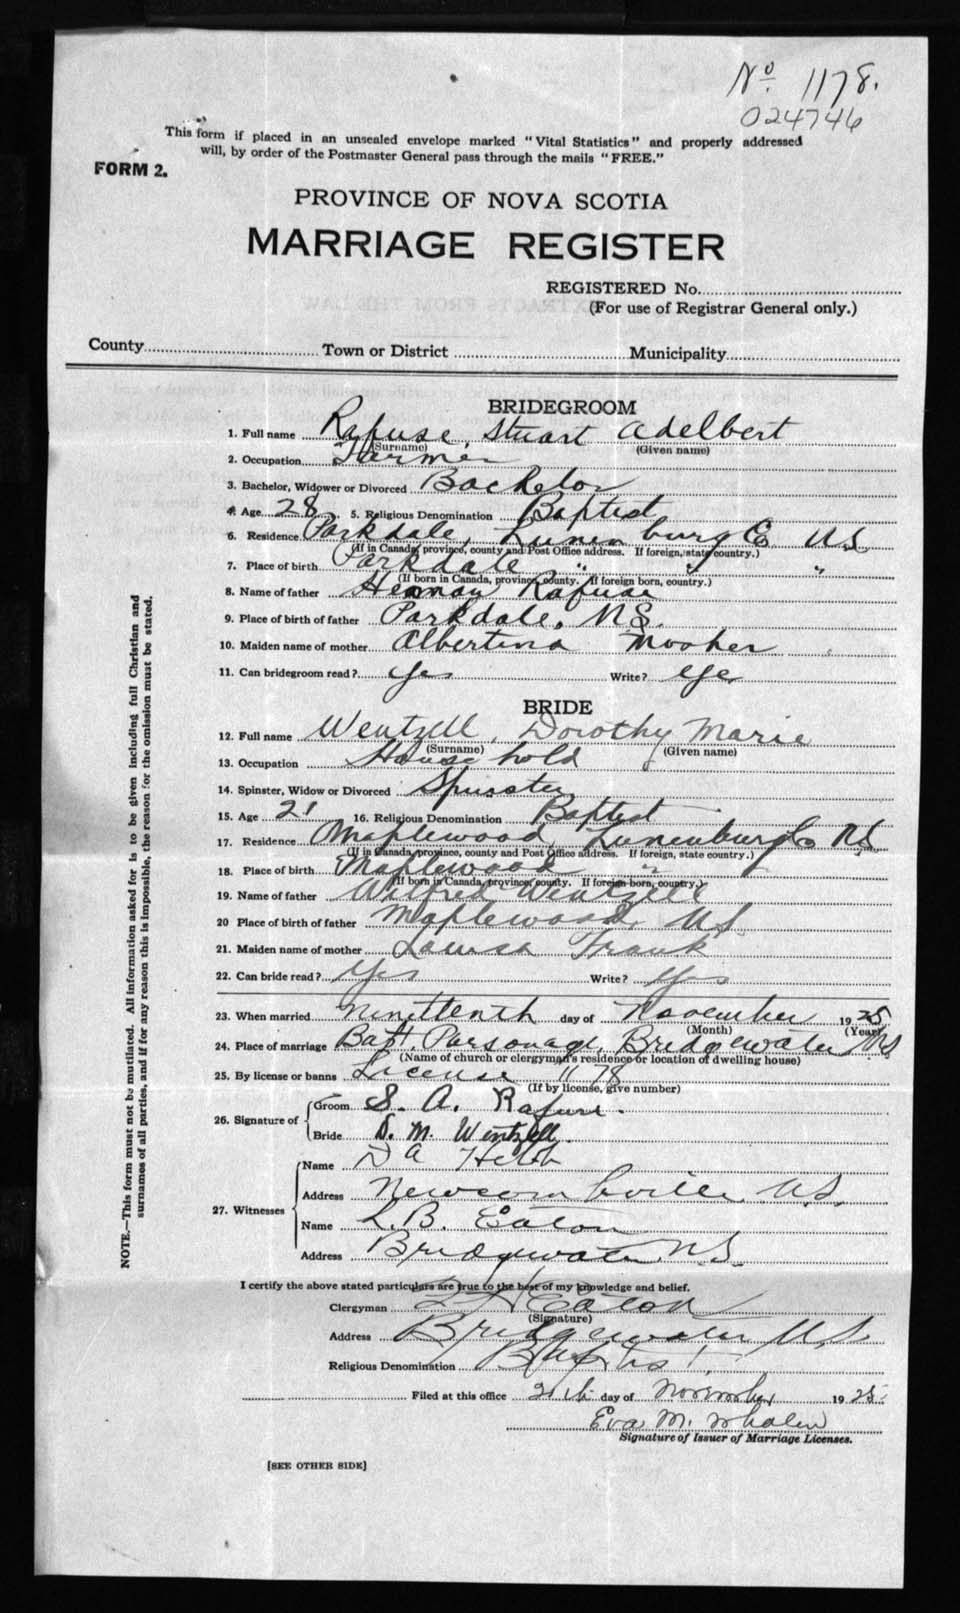 No 1178.
024746
This form if placed in an unsealed envelope marked "Vital Statistics" and properly addressed
will, by order of the Postmaster General pass through the mails "FREE."
FORM 2.
PROVINCE OF NOVA SCOTIA
MARRIAGE REGISTER
REGISTERED No.
(For use of Registrar General only.)
County Town or District Municipality
BRIDEGROOM
1. Full name Rafuse, Stuart Adelbert
(Surname) (Given name)
2. Occupation Farmer
3. Bachelor, Widower or Divorced Bachelor
4. Age 28 5. Religious Denomination Baptist
6. Residence Parkdale, Lunenburg Co N.S.
(If in Canada, province, county and Post Office address. If foreign, state country.)
7. Place of birth Parkdale " " "
(If born in Canada, province, county. If foreign born, country.)
8. Name of father Herman Rafuse
9. Place of birth of father Parkdale, N.S.
10. Maiden name of mother Albertina Mosher
11. Can bridegroom read? Yes Write? Yes
BRIDE
12. Full name Wentzell, Dorothy Marie
(Surname) (Given name)
13. Occupation Household
14. Spinster, Widow or Divorced Spinster
15. Age 21 16. Religious Denomination Baptist
17. Residence Maplewood, Lunenburg Co N.S.
(If in Canada, province, county and Post Office address. If foreign, state country.)
18. Place of birth Maplewood "
(If born in Canada, province, county. If foreign born, country.)
19. Name of father Wentzell
20 Place of birth of father Maplewood, N.S.
21. Maiden name of mother Louisa Frank
22. Can bride read? Yes Write? Yes
23. When married Nineteenth day of November 1925
(Month) (Year)
24. Place of marriage Bapt. Parsonage, Bridgewater N.S.
(Name of church or clergyman's residence or location of dwelling house)
25. By license or banns License 1178
(If by license, give number)
26. Signature of Groom S. A. Rafuse.
Bride D. M. Wentzell.
27. Witnesses Name D A Hebb
Address Newcomville N.S.
Name L. B. Eaton
Address Bridgewater N.S.
I certify the above stated particulars are true to the best of my knowledge and belief.
Clergyman Eaton
(Signature)
Address Bridgewater N.S.
Religious Denomination Baptist
Filed at this office 21th day of November 1925
Eva M. Whalen
Signature of Issuer of Marriage Licenses.
[SEE OTHER SIDE]
NOTE.—This form must not be mutilated. All information asked for is to be given including full Christian and
surnames of all parties, and if for any reason this is impossible, the reason for the omission must be stated.